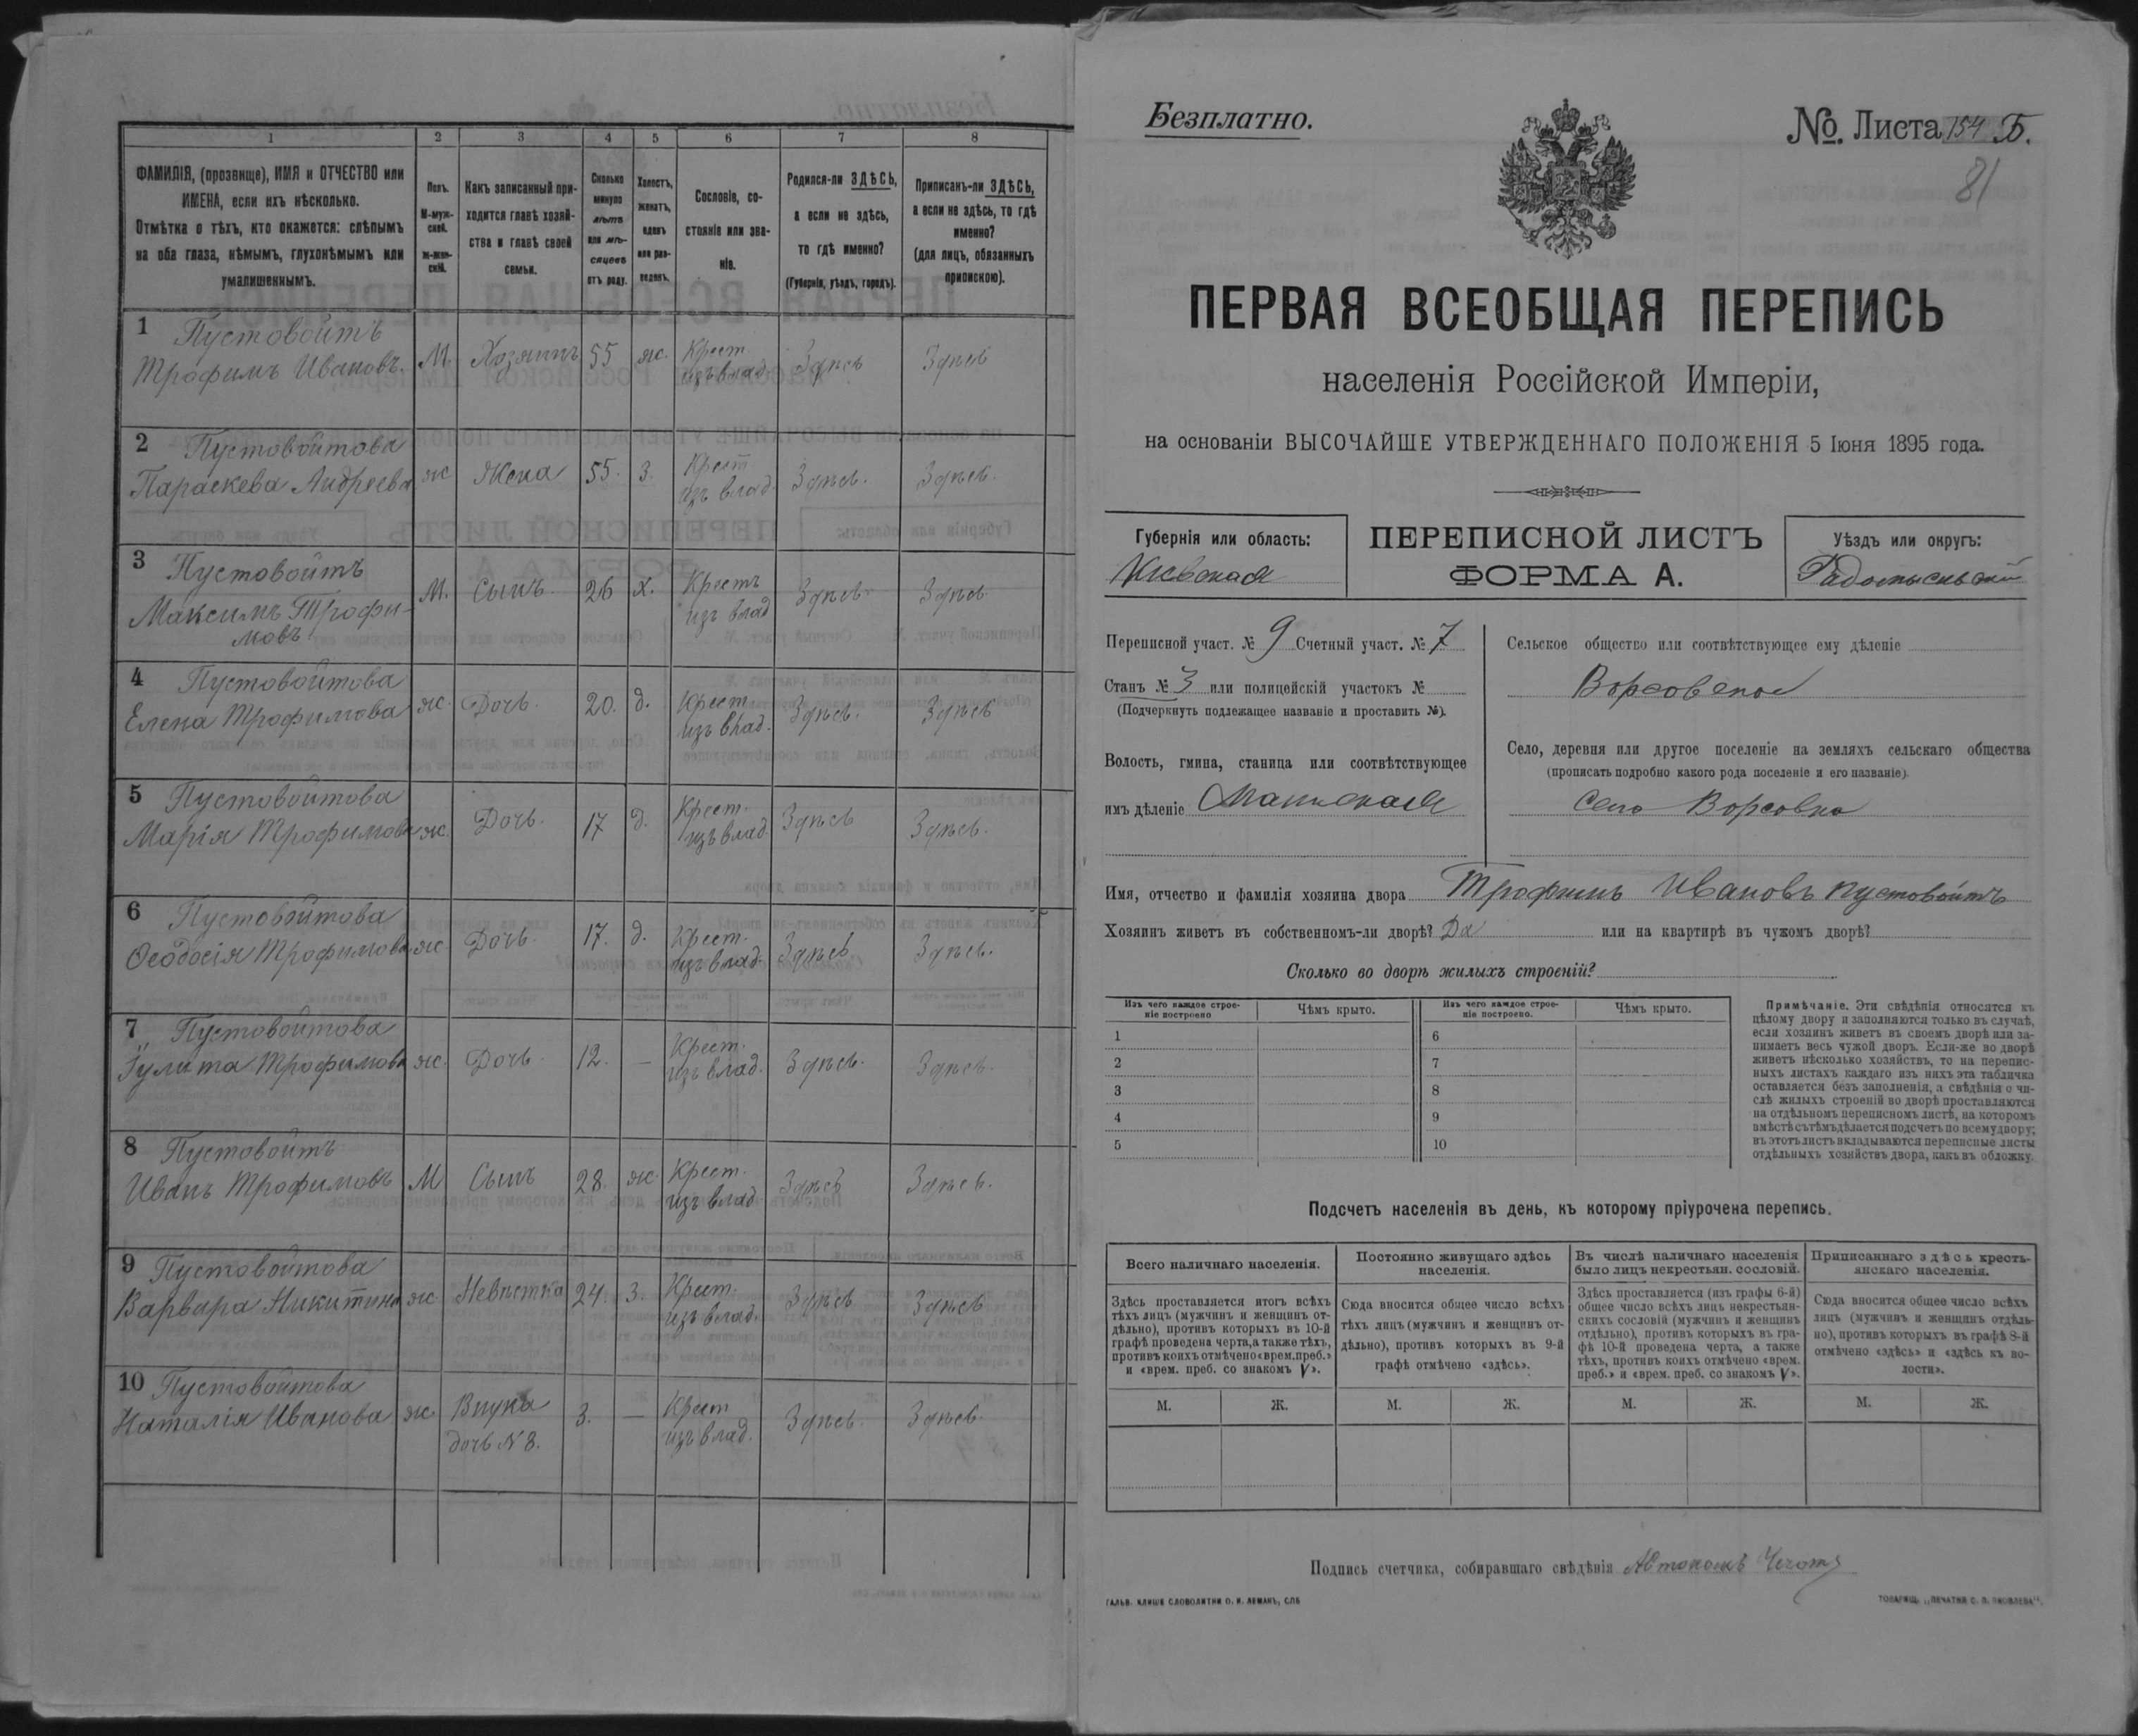 1 2 3 4 5 6 7 8
ФАМИЛІЯ, (прозвище), ИМЯ и ОТЧЕСТВО или
ИМЕНА, если ихъ нѣсколько.
Отмѣтка о тѣхъ, кто окажется: слѣпымъ
на оба глаза, нѣмымъ, глухонѣмымъ или
умалишеннымъ.
Полъ.
М-муж-
ской.
Ж-жен-
скій.
Какъ записанный при-
ходится главѣ хозяй-
ства и главѣ своей
семьи.
Сколько
минуло
лѣтъ
или мѣ-
сяцевъ
отъ роду.
Холостъ,
женатъ,
вдовъ
или раз-
веденъ.
Сословіе, со-
стояніе или зва-
ніе.
Родился-ли ЗДѢСЬ,
а если не здѣсь,
то гдѣ именно?
(Губернія, уѣздъ, городъ).
Приписанъ-ли ЗДѢСЬ,
а если не здѣсь, то гдѣ
именно?
(для лицъ, обязанныхъ
припискою).
1 Пустовойтъ
Трофимъ Ивановъ. М. Хозяинъ 55 ж. Крест. изъ влад. Здѣсь Здѣсь
2 Пустовойтова
Параскева Андреева ж Жена 55. З. Крест изъ влад. Здѣсь. Здѣсь.
3 Пустовойтъ
Максимъ Трофи-
мовъ М. Сынъ. 26 х. Крестъ изъ влад Здѣсь Здѣсь
4 Пустовойтова
Елена Трофимова ж. Дочь. 20. д. Крест изъ влад. Здѣсь. Здѣсь
5 Пустовойтова
Марія Трофимова ж. Дочь. 17 д. Крест. изъ влад. Здѣсь Здѣсь.
6 Пустовойтова
Ѳеодосія Трофимова ж. Дочь. 17. д. Крест. изъ влад. Здѣсь Здѣсь.
7 Пустовойтова
Іулита Трофимова ж. Дочь 12. — Крест. изъ влад. Здѣсь. Здѣсь.
8 Пустовойтъ
Иванъ Трофимовъ М Сынъ 28. ж. Крест. изъ влад. Здѣсь Здѣсь.
9 Пустовойтова
Варвара Никитина ж Невѣстка 24. З. Крест. изъ влад. Здѣсь Здѣсь
10 Пустовойтова
Наталія Иванова ж Внука
дочь N 8. 3. — Крест изъ влад. Здѣсь. Здѣсь.
Безплатно.
№. Листа 154 Б.
81
ПЕРВАЯ ВСЕОБЩАЯ ПЕРЕПИСЬ
населенія Россійской Имперіи,
на основаніи ВЫСОЧАЙШЕ УТВЕРЖДЕННАГО ПОЛОЖЕНІЯ 5 Іюня 1895 года.
Губернія или область:
Кіевская
ПЕРЕПИСНОЙ ЛИСТЪ
ФОРМА А.
Уѣздъ или округъ:
Радомысльскій
Переписной участ. № 9 Счетный участ. № 7
Станъ № 3 или полицейскій участокъ №
(Подчеркнуть подлежащее названіе и проставить №).
Волость, гмина, станица или соотвѣтствующее
имъ дѣленіе
Сельское общество или соотвѣтствующее ему дѣленіе
Ворсовское
Село, деревня или другое поселеніе на земляхъ сельскаго общества
(прописать подробно какого рода поселеніе и его названіе)
Село Ворсовка
Имя, отчество и фамилія хозяина двора Трофимъ Ивановъ Пустовойтъ
Хозяинъ живетъ въ собственномъ-ли дворѣ? Да или на квартирѣ въ чужомъ дворѣ?
Сколько во дворѣ жилыхъ строеній?
Изъ чего каждое строе-
ніе построено
Чѣмъ крыто.
Изъ чего каждое строе-
ніе построено.
Чѣмъ крыто.
1 6
2 7
3 8
4 9
5 10
Примѣчаніе. Эти свѣдѣнія относятся къ
цѣлому двору и заполняются только въ случаѣ,
если хозяинъ живетъ въ своемъ дворѣ или за-
нимаетъ весь чужой дворъ. Если-же во дворѣ
живетъ нѣсколько хозяйствъ, то на перепис-
ныхъ листахъ каждаго изъ нихъ эта табличка
оставляется безъ заполненія, а свѣдѣнія о чи-
слѣ жилыхъ строеній во дворѣ проставляются
на отдѣльномъ переписномъ листѣ, на которомъ
вмѣстѣ сътѣмъ дѣлается подсчетъ по всему двору;
въ этотъ листъ вкладываются переписные листы
отдѣльныхъ хозяйствъ двора, какъ въ обложку.
Подсчетъ населенія въ день, къ которому пріурочена перепись.
Всего наличнаго населенія.
Здѣсь проставляется итогъ всѣхъ
тѣхъ лицъ (мужчинъ и женщинъ от-
дѣльно), противъ которыхъ въ 10-й
графѣ проведена черта, а также тѣхъ,
противъ коихъ отмѣчено «врем. преб.»
и «врем. преб. со знакомъ V».
Постоянно живущаго здѣсь
населенія.
Сюда вносится общее число всѣхъ
тѣхъ лицъ (мужчинъ и женщинъ от-
дѣльно), противъ которыхъ въ 9-й
графѣ отмѣчено «здѣсь».
Въ числѣ наличнаго населенія
было лицъ некрестьян. сословій.
Здѣсь проставляется (изъ графы 6-й)
общее число всѣхъ лицъ некрестьян-
скихъ сословій (мужчинъ и женщинъ
отдѣльно), противъ которыхъ въ гра-
фѣ 10-й проведена черта, а также
тѣхъ, противъ коихъ отмѣчено «врем.
преб.» и «врем. преб. со знакомъ V».
Приписаннаго здѣсь кресть-
янскаго населенія.
Сюда вносится общее число всѣхъ
лицъ (мужчинъ и женщинъ отдѣль-
но), противъ которыхъ въ графѣ 8-й
отмѣчено «здѣсь» и «здѣсь къ во-
лости».
М. Ж. М. Ж. М. Ж. М. Ж.
Подпись счетчика, собиравшаго свѣдѣнія Автономъ
ГАЛЬВ. КЛИШЕ СЛОВОЛИТНИ О. И. ЛЕМАНЪ, СПБ
ТОВАРИЩ. „ПЕЧАТНЯ С. П. ЯКОВЛЕВА“.